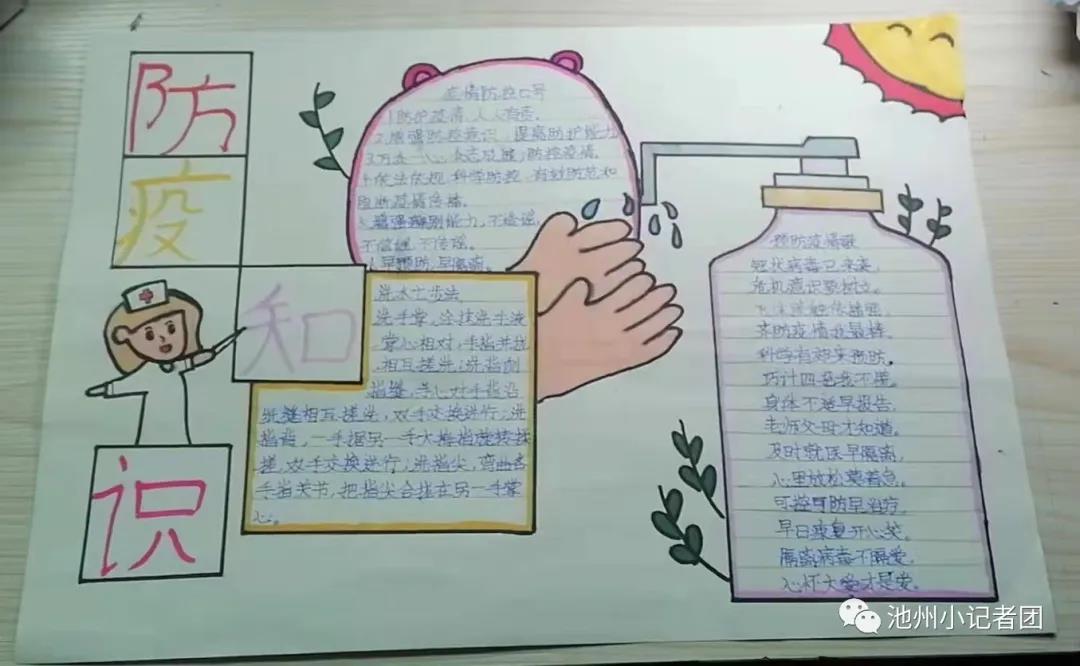 防
疫
知
识
疫情防控口号
1.防护疫情,人人有责。
2.增强防控意识,提高防护能力
3.万众一心,众志成城,防控疫情。
4.依法依规,科学防控,有效防范和
阻断疫情传播。
5.增强辨别能力,不造谣,
不信谣,不传谣。
6.早预防,早隔离。
洗手七步法
洗手掌,涂抹洗手液
,掌心相对,手指并拢
相互搓洗;洗指侧
指缝,掌心对手指沿
指缝相互搓洗,双手交换进行;洗
指背,一手握另一手大拇指旋转揉
搓,双手交换进行;洗指尖,弯曲各
手指关节,把指尖合拢在另一手掌
心。
预防疫情歌
冠状病毒已来袭,
危机意识要树立。
飞沫接触传播强,
齐防疫情我最棒。
科学有效来预防。
巧计四急我不
身体不适早报告,
老师父母才知道。
及时就医早隔离,
心里放松莫着急。
可控可防早治疗,
早日康复开心笑。
隔离病毒不隔爱,
心怀大爱才是爱。
池州小记者团